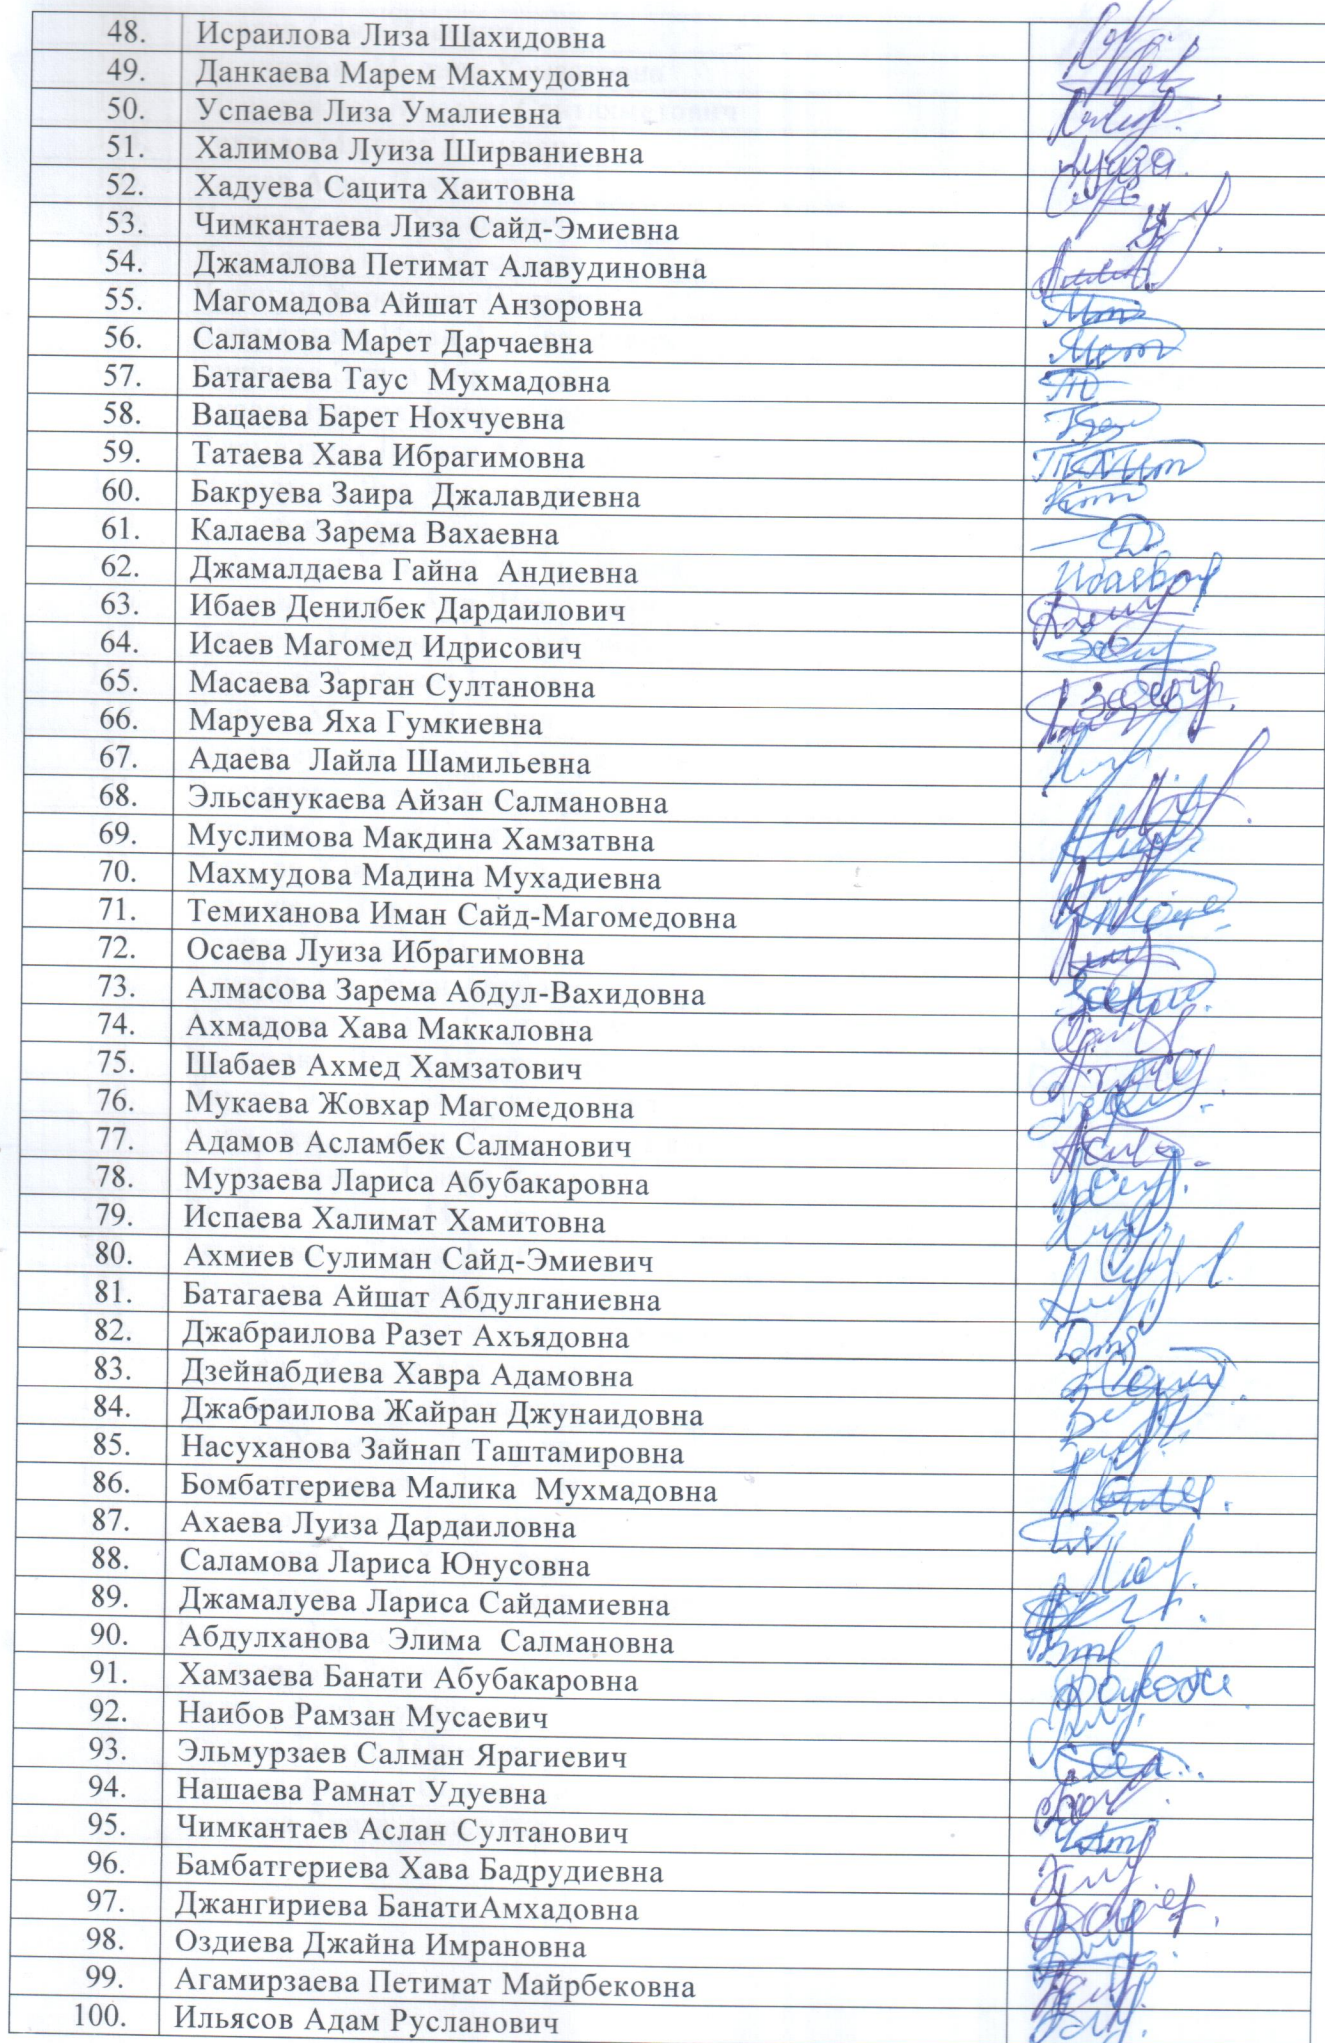 48. Исраилова Лиза Шахидовна
49. Данкаева Марем Махмудовна
50. Успаева Лиза Умалиевна
51. Халимова Луиза Ширваниевна
52. Хадуева Сацита Хаитовна
53. Чимкантаева Лиза Сайд-Эмиевна
54. Джамалова Петимат Алавудиновна
55. Магомадова Айшат Анзоровна
56. Саламова Марет Дарчаевна
57. Батагаева Таус Мухмадовна
58. Вацаева Барет Нохчуевна
59. Татаева Хава Ибрагимовна
60. Бакруева Заира Джалавдиевна
61. Калаева Зарема Вахаевна
62. Джамалдаева Гайна Андиевна
63. Ибаев Денилбек Дардаилович
64. Исаев Магомед Идрисович
65. Масаева Зарган Султановна
66. Маруева Яха Гумкиевна
67. Адаева Лайла Шамильевна
68. Эльсанукаева Айзан Салмановна
69. Муслимова Макдина Хамзатвна
70. Махмудова Мадина Мухадиевна
71. Темиханова Иман Сайд-Магомедовна
72. Осаева Луиза Ибрагимовна
73. Алмасова Зарема Абдул-Вахидовна
74. Ахмадова Хава Маккаловна
75. Шабаев Ахмед Хамзатович
76. Мукаева Жовхар Магомедовна
77. Адамов Асламбек Салманович
78. Мурзаева Лариса Абубакаровна
79. Испаева Халимат Хамитовна
80. Ахмиев Сулиман Сайд-Эмиевич
81. Батагаева Айшат Абдулганиевна
82. Джабраилова Разет Ахъядовна
83. Дзейнабдиева Хавра Адамовна
84. Джабраилова Жайран Джунаидовна
85. Насуханова Зайнап Таштамировна
86. Бомбатгериева Малика Мухмадовна
87. Ахаева Луиза Дардаиловна
88. Саламова Лариса Юнусовна
89. Джамалуева Лариса Сайдамиевна
90. Абдулханова Элима Салмановна
91. Хамзаева Банати Абубакаровна
92. Наибов Рамзан Мусаевич
93. Эльмурзаев Салман Ярагиевич
94. Нашаева Рамнат Удуевна
95. Чимкантаев Аслан Султанович
96. Бамбатгериева Хава Бадрудиевна
97. Джангириева БанатиАмхадовна
98. Оздиева Джайна Имрановна
99. Агамирзаева Петимат Майрбековна
100. Ильясов Адам Русланович